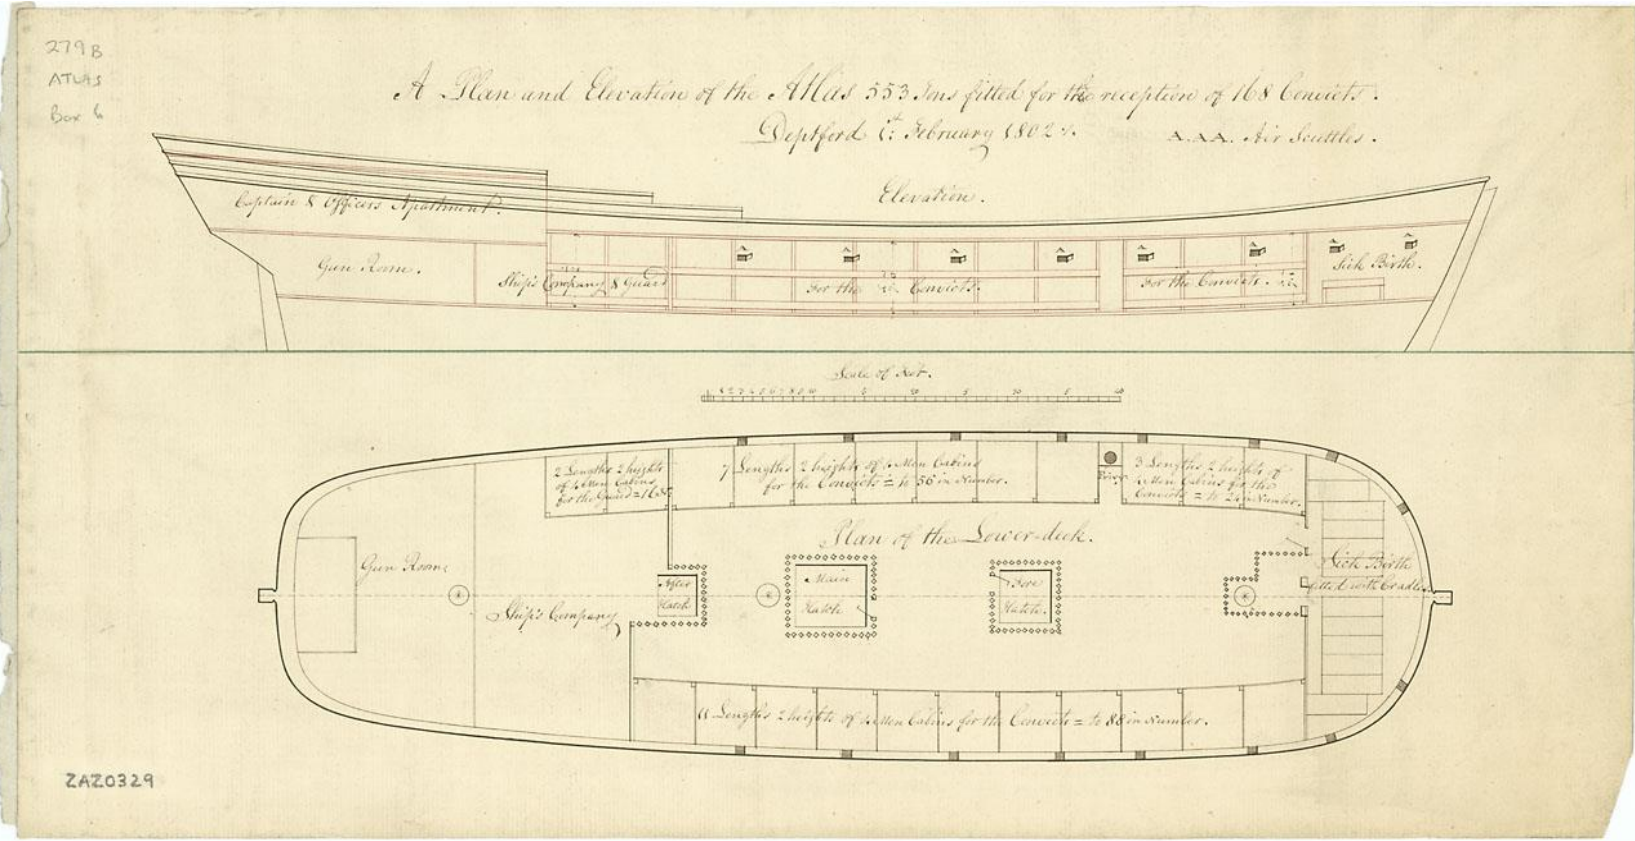 279B
ATLAS
Box 6
A Plan and Elevation of the Atlas 553 Tons fitted for the reception of 168 Convicts.
Deptford 1st: February 1802.
A.A.A. Air Scuttles.
Elevation.
Captain & Officers Apartment.
Gun Room.
Ship's Company & Guard
For the Convicts.
For the Convicts.
Sick Birth.
Scale of Feet.
2 Lengths 2 heights
of 4 Men Cabins
for the Guard = 16
7 Lengths 2 heights of 4 Men Cabins
for the Convicts = to 56 in Number.
Privy
3 Lengths 2 heights of
4 Men Cabins for the
Convicts = to 24 in Number.
Plan of the Lower-deck.
Gun Room
Ship's Company
After
Hatch
Main
Hatch
Fore
Hatch.
Sick Birth
fitted with Cradles
11 Lengths 2 heights of 4 Men Cabins for the Convicts = to 88 in Number.
ZAZ0329